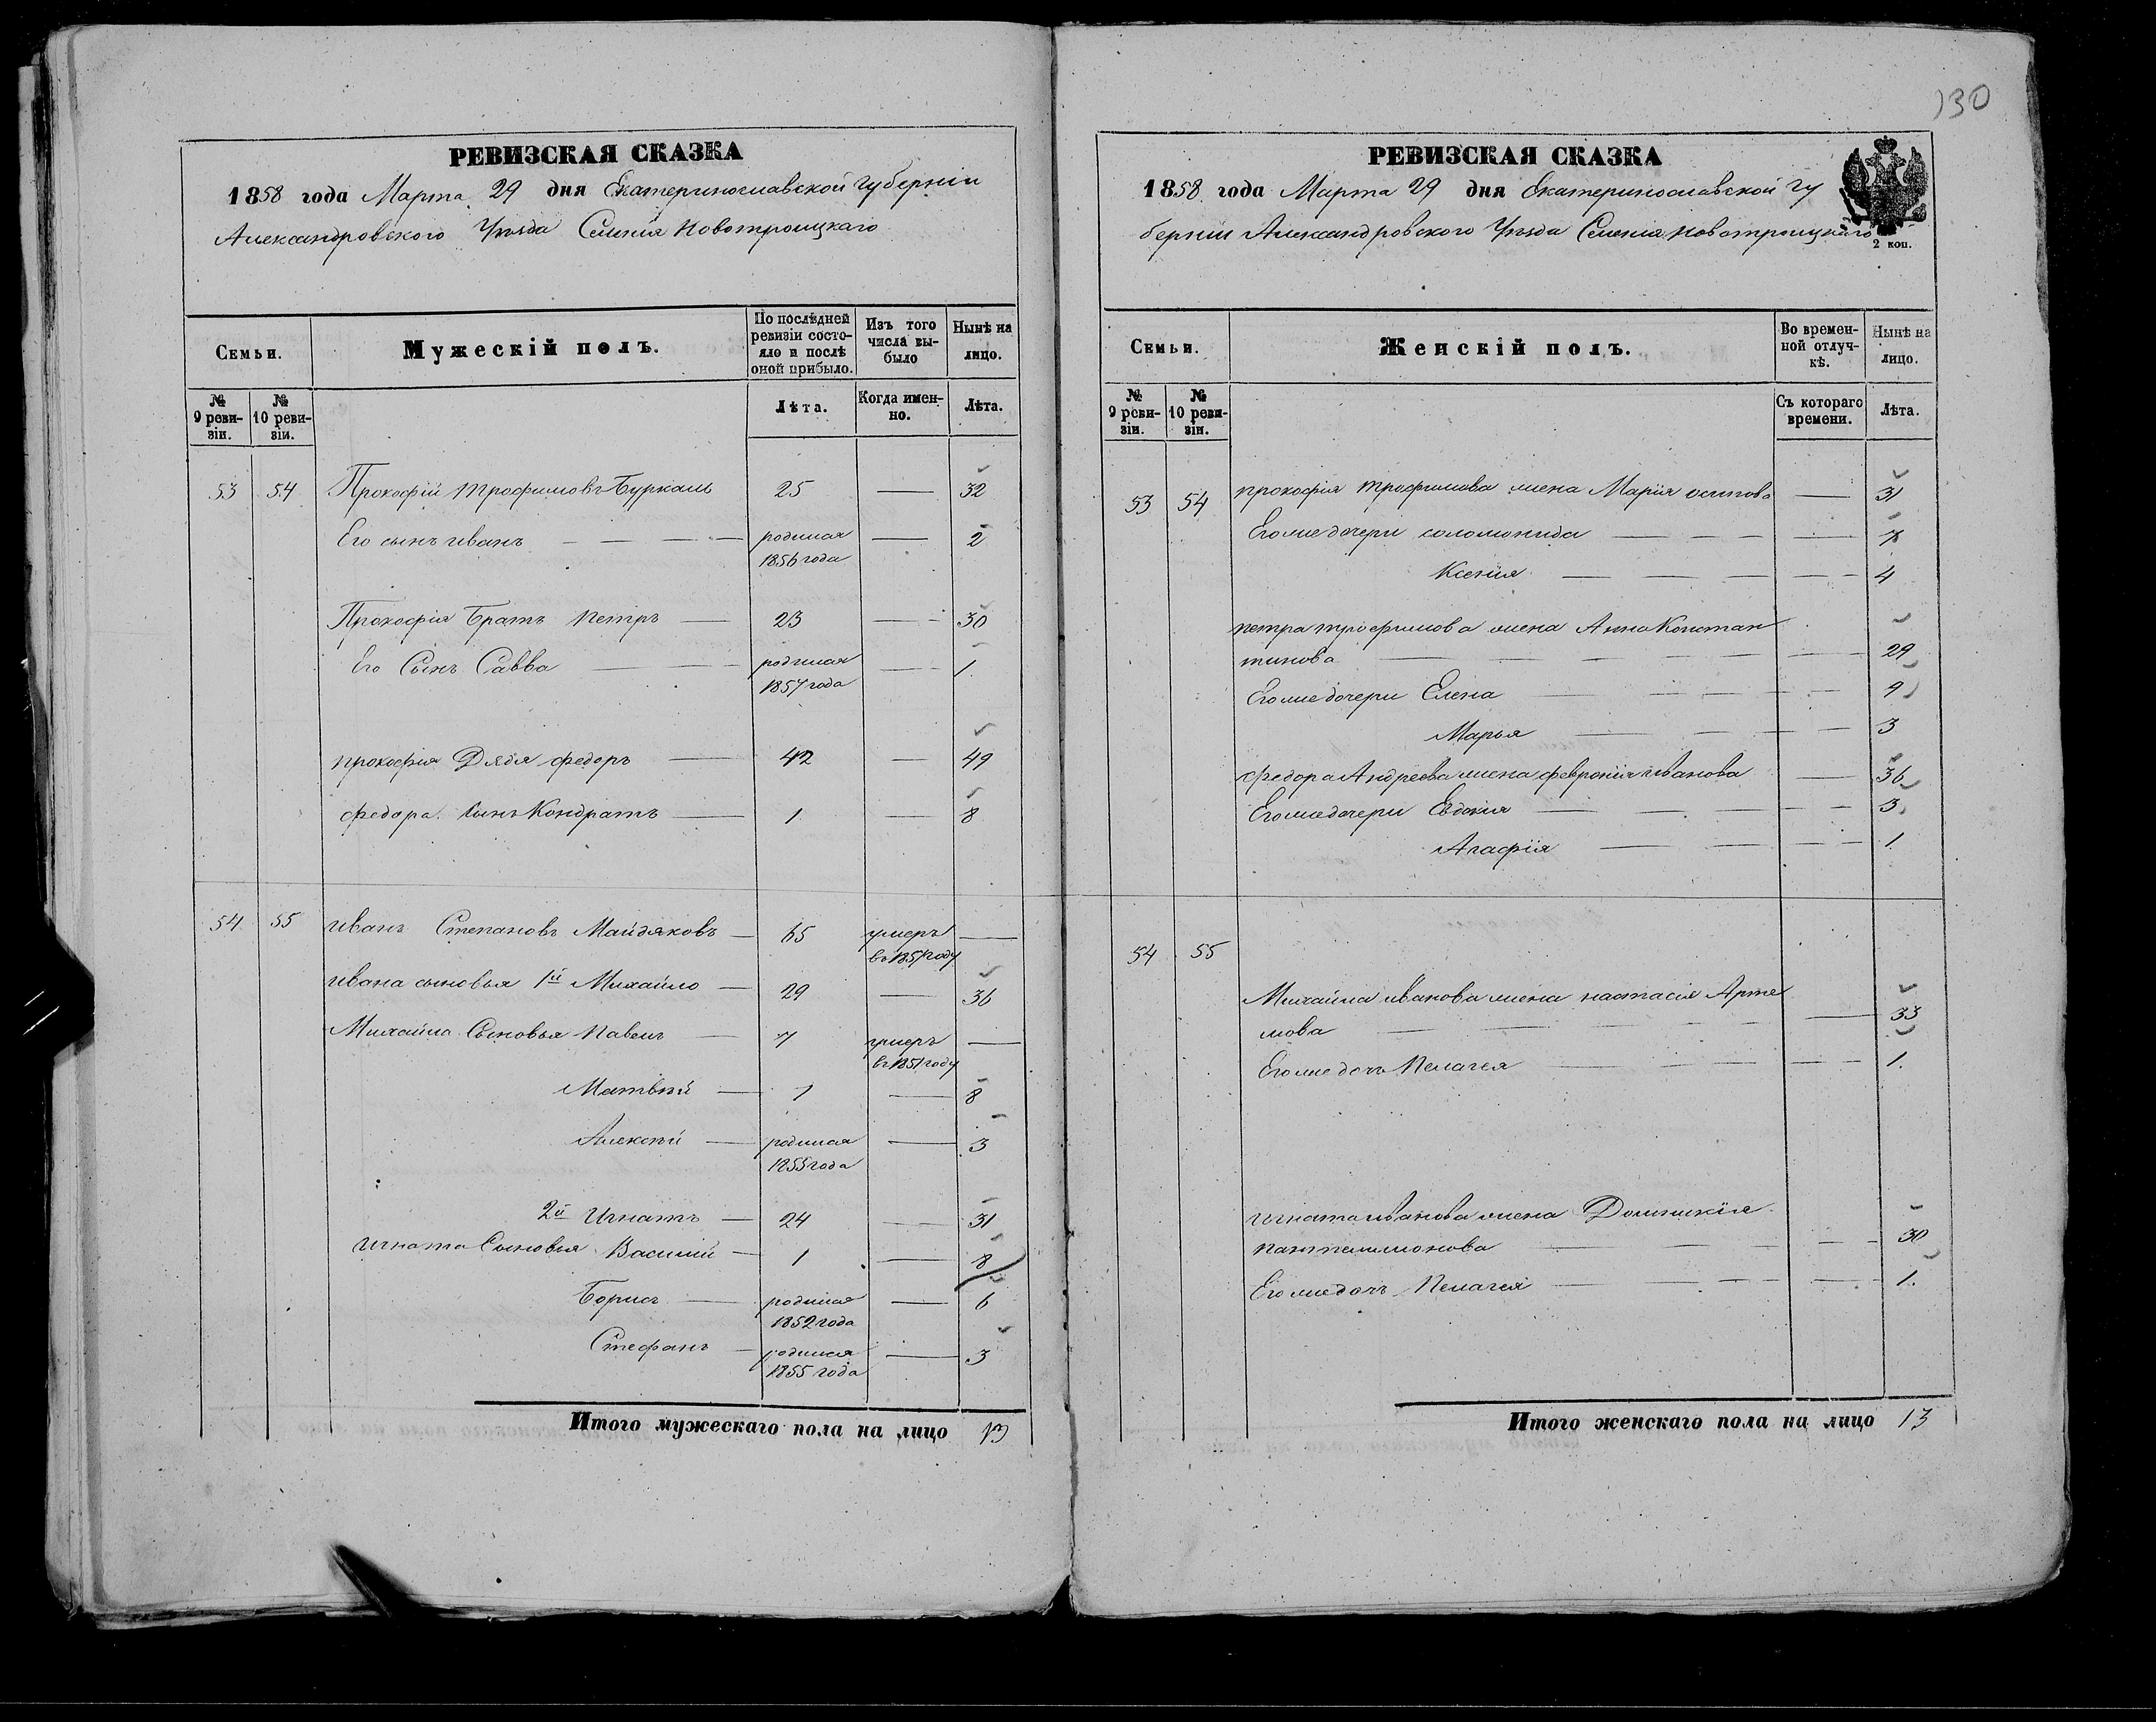 130
РЕВИЗСКАЯ СКАЗКА
1858 года Марта 29 дня Екатеринославской губерніи
Александровского Уѣзда Селенія Новотроицкаго
Семьи.
Мужескій полъ.
По послѣдней ревизіи состояло и послѣ оной прибыло.
Изъ того числа выбыло
Нынѣ на лицо.
№ 9 ревизіи.
№ 10 ревизіи.
Лѣта.
Когда именно.
Лѣта.
53 54 Прокофій Трофимовъ Буркаль 25 — 32
Его сынъ иванъ — — — родился 1856 года — 2
Прокофія Братъ петръ — 23 — 30
Его Сынъ Савва — родился 1857 года — 1.
прокофія Дядя федоръ — 42 — 49
федора Сынъ Кондратъ — 1 — 8
54 55 иванъ Степановъ Майдяковъ — 65 умеръ в 1857 году —
ивана сыновья 1й Михайло — 29 — 36
Михайла Сыновья павелъ — 7 умеръ в 1851 году —
Матвѣй — 1 — 8
Алексѣй — родился 1855 года — 3
2й Игнатъ — 24 — 31
игната Сыновья Василій — 1 — 8
Борисъ — родился 1852 года — 6
Стефанъ — родился 1855 года — 3
Итого мужескаго пола на лицо 13
РЕВИЗСКАЯ СКАЗКА
1858 года Марта 29 дня Екатеринославской гу
берніи Александровского Уѣзда Селенія новотроицкаго
2 коп.
Семьи.
Женскій полъ.
Во временной отлучкѣ.
Нынѣ на лицо.
№ 9 ревизіи.
№ 10 ревизіи.
Съ котораго времени.
Лѣта.
53 54 прокофія трофимова жена Марія осипова — 31
Егоже дочери соломонида — — — 7
Ксенія — — — 4
петра трофимова жена Анна Констан
тинова — — — 29
Егоже дочери Елена — — — 9
Марья — — — 3
федора Андреева жена феврония иванова — 36
Егоже дочери Евдокия — — — 3.
Агафія — — — 1
54 55
Михайла иванова жена настасія Арте
мова — — — 33
Егоже дочь Пелагея — — — 1.
игната иванова жена Домникія
пантилимонова — — — 30
Егоже дочь Пелагея — — — 1.
Итого женскаго пола на лицо 13